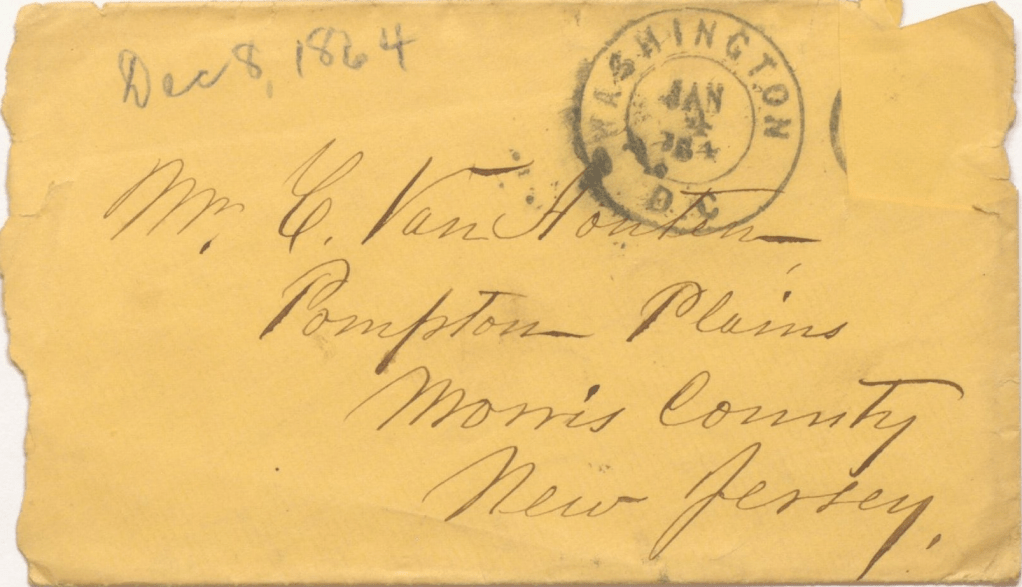 Dec 8, 1864
WASHINGTON
JAN
4
'64
D.C.
Mr. C. Van Houten
Pompton Plains
Morris County
New Jersey.